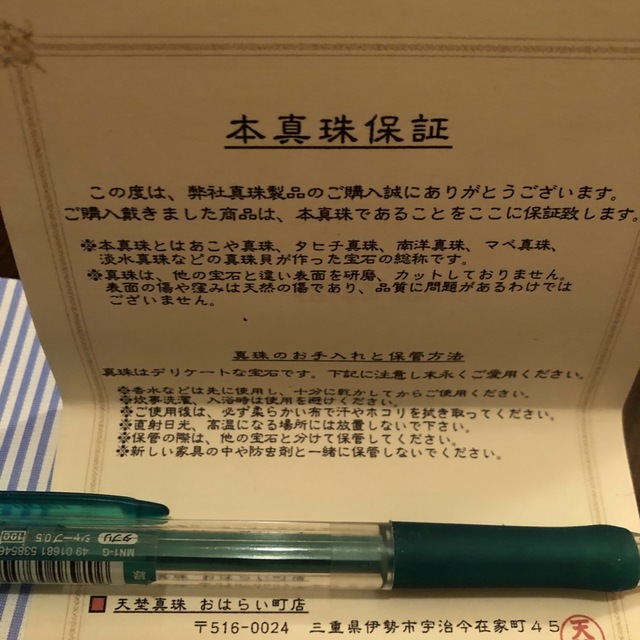 本真珠保証
この度は、弊社真珠製品のご購入誠にありがとうございます。
ご購入戴きました商品は、本真珠であることをここに保証致します。
※本真珠とはあこや真珠、タヒチ真珠、南洋真珠、マベ真珠、
淡水真珠などの真珠貝が作った宝石の総称です。
※真珠は、他の宝石と違い表面を研磨、カットしておりません。
表面の傷や窪みは天然の傷であり、品質に問題があるわけでは
ございません。
真珠のお手入れと保管方法
真珠はデリケートな宝石です。下記に注意し末永くご愛用ください。
※香水などは先に使用し、十分に乾かしてからご使用ください。
※炊事洗濯、入浴時は使用を避けください。
※ご使用後は、必ず柔らかい布で汗やホコリを拭き取ってください。
※直射日光、高温になる場所には放置しないで下さい。
※保管の際は、他の宝石と分けて保管してください。
※新しい家具の中や防虫剤と一緒に保管しないでください。
タプリ
シャープ0.5
100
MN1-G
49 01681 538546
緑
天埜真珠 おはらい町店
〒516-0024 三重県伊勢市宇治今在家町45
天